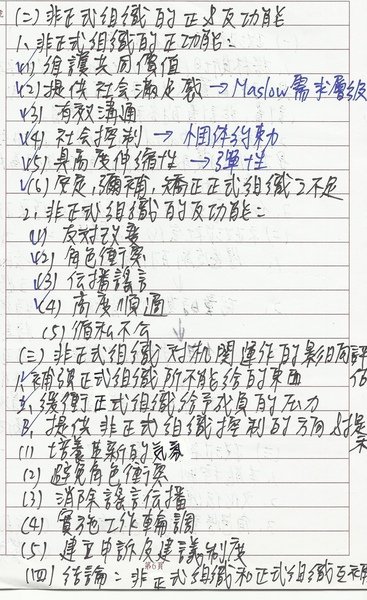 (二)非正式組織的正&反功能
1、非正式組織的正功能:
(1) 維護共同價值
(2) 提供社會滿足感 → Maslow需求層級
(3) 有效溝通
(4) 社会控制 → 個体約束力
(5) 具高度伸縮性 → 彈性
(6) 安定,彌補,矯正正式組織之不足
2、非正式組織的反功能:
(1) 反对改變
(2) 角色衝突
(3) 伝播謠言
(4) 高度順適
(5) 徇私不公
(三)非正式組織对机関運作的影响評估
補領正式組織所不能給的東西
緩衝正式組織給予成員的压力
提供非正式組織控制的方向&提案
(1) 培養革新的気氛
(2) 避免角色衝突
(3) 消除謠言伝播
(4) 實施工作輪調
(5) 建立申訴及建議制度
第6頁
(四)結論:非正式組織和正式組織互補